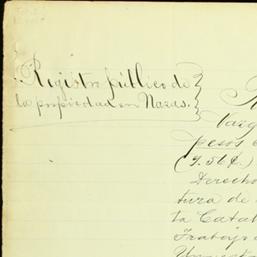 Registro público de
la propiedad en Nazas.
R
Varg
pesos
($.564.)
Derecho
tura de
la Catal
Trabajo